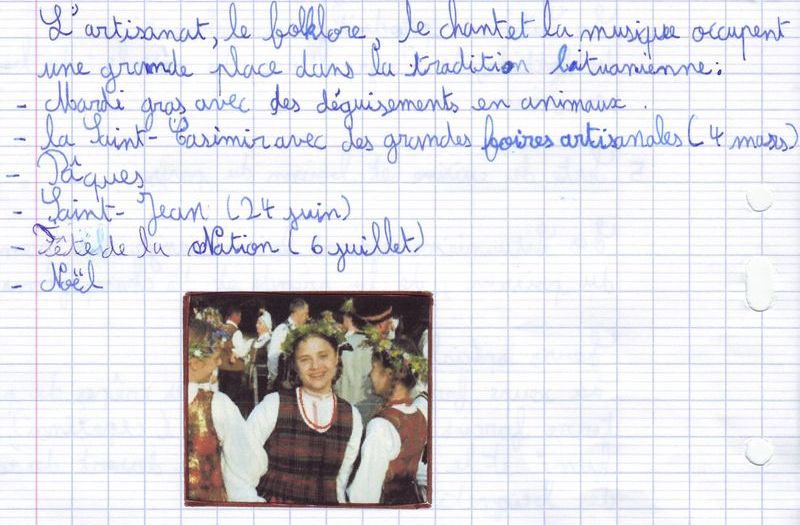 L'artisanat, le folklore, le chant et la musique occupent
une grande place dans la tradition lituanienne :
- Mardi gras avec des déguisements en animaux.
- la Saint-Casimir avec des grandes foires artisanales (4 mars)
- Pâques
- Saint-Jean (24 juin)
- Fête de la Nation (6 juillet)
- Noël